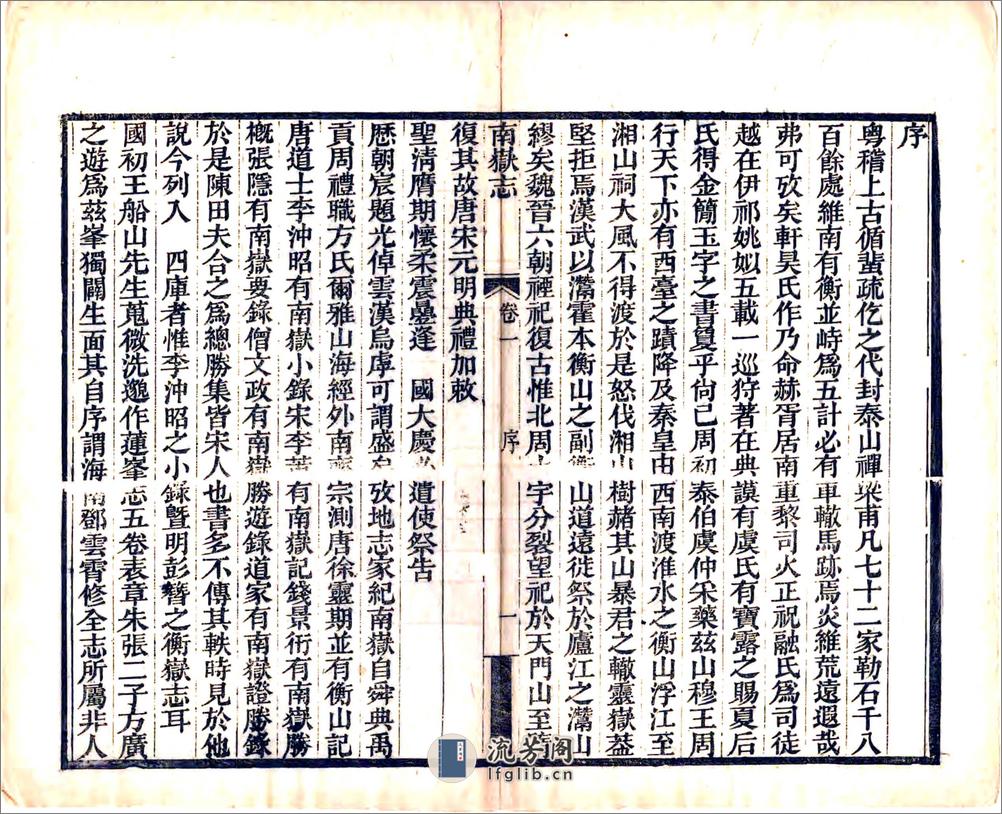 序
粵稽上古循蜚疏仡之代封泰山禪梁甫凡七十二家勒石千八
百餘處維南有衡並峙爲五計必有車轍馬跡焉炎維荒遠遐哉
弗可攷矣軒昊氏作乃命赫胥居南重黎司火正祝融氏爲司徒
越在伊祁姚姒五載一巡狩著在典謨有虞氏有寶露之賜夏后
氏得金簡玉字之書敻乎尙已周初泰伯虞仲采藥茲山穆王周
行天下亦有西臺之蹟降及秦皇由西南渡淮水之衡山浮江至
湘山祠大風不得渡於是怒伐湘山樹赭其山暴君之轍靈嶽葢
堅拒焉漢武以灊霍本衡山之副衡山道遠徙祭於廬江之灊山
繆矣魏晉六朝禋祀復古惟北周 字分裂望祀於天門山至
南嶽志 卷一 序 一
復其故唐宋元明典禮加敕
聖淸膺期懷柔震疊逢 國大慶 遣使祭告
歷朝宸題光倬雲漢烏虖可謂盛矣攷地志家紀南嶽自舜典禹
貢周禮職方氏爾雅山海經外南齊宗測唐徐靈期並有衡山記
唐道士李沖昭有南嶽小錄宋李 有南嶽記錢景衎有南嶽勝
槪張隱有南嶽要錄僧文政有南嶽勝遊錄道家有南嶽證勝錄
於是陳田夫合之爲總勝集皆宋人也書多不傳其軼時見於他
說今列入 四庫者惟李沖昭之小錄曁明彭簪之衡嶽志耳
國初王船山先生蒐微洗邈作蓮峯志五卷表章朱張二子方廣
之遊爲茲峯獨闢生面其自序謂海南鄧雲霄修全志所屬非人
流芳阁
lfglib.cn